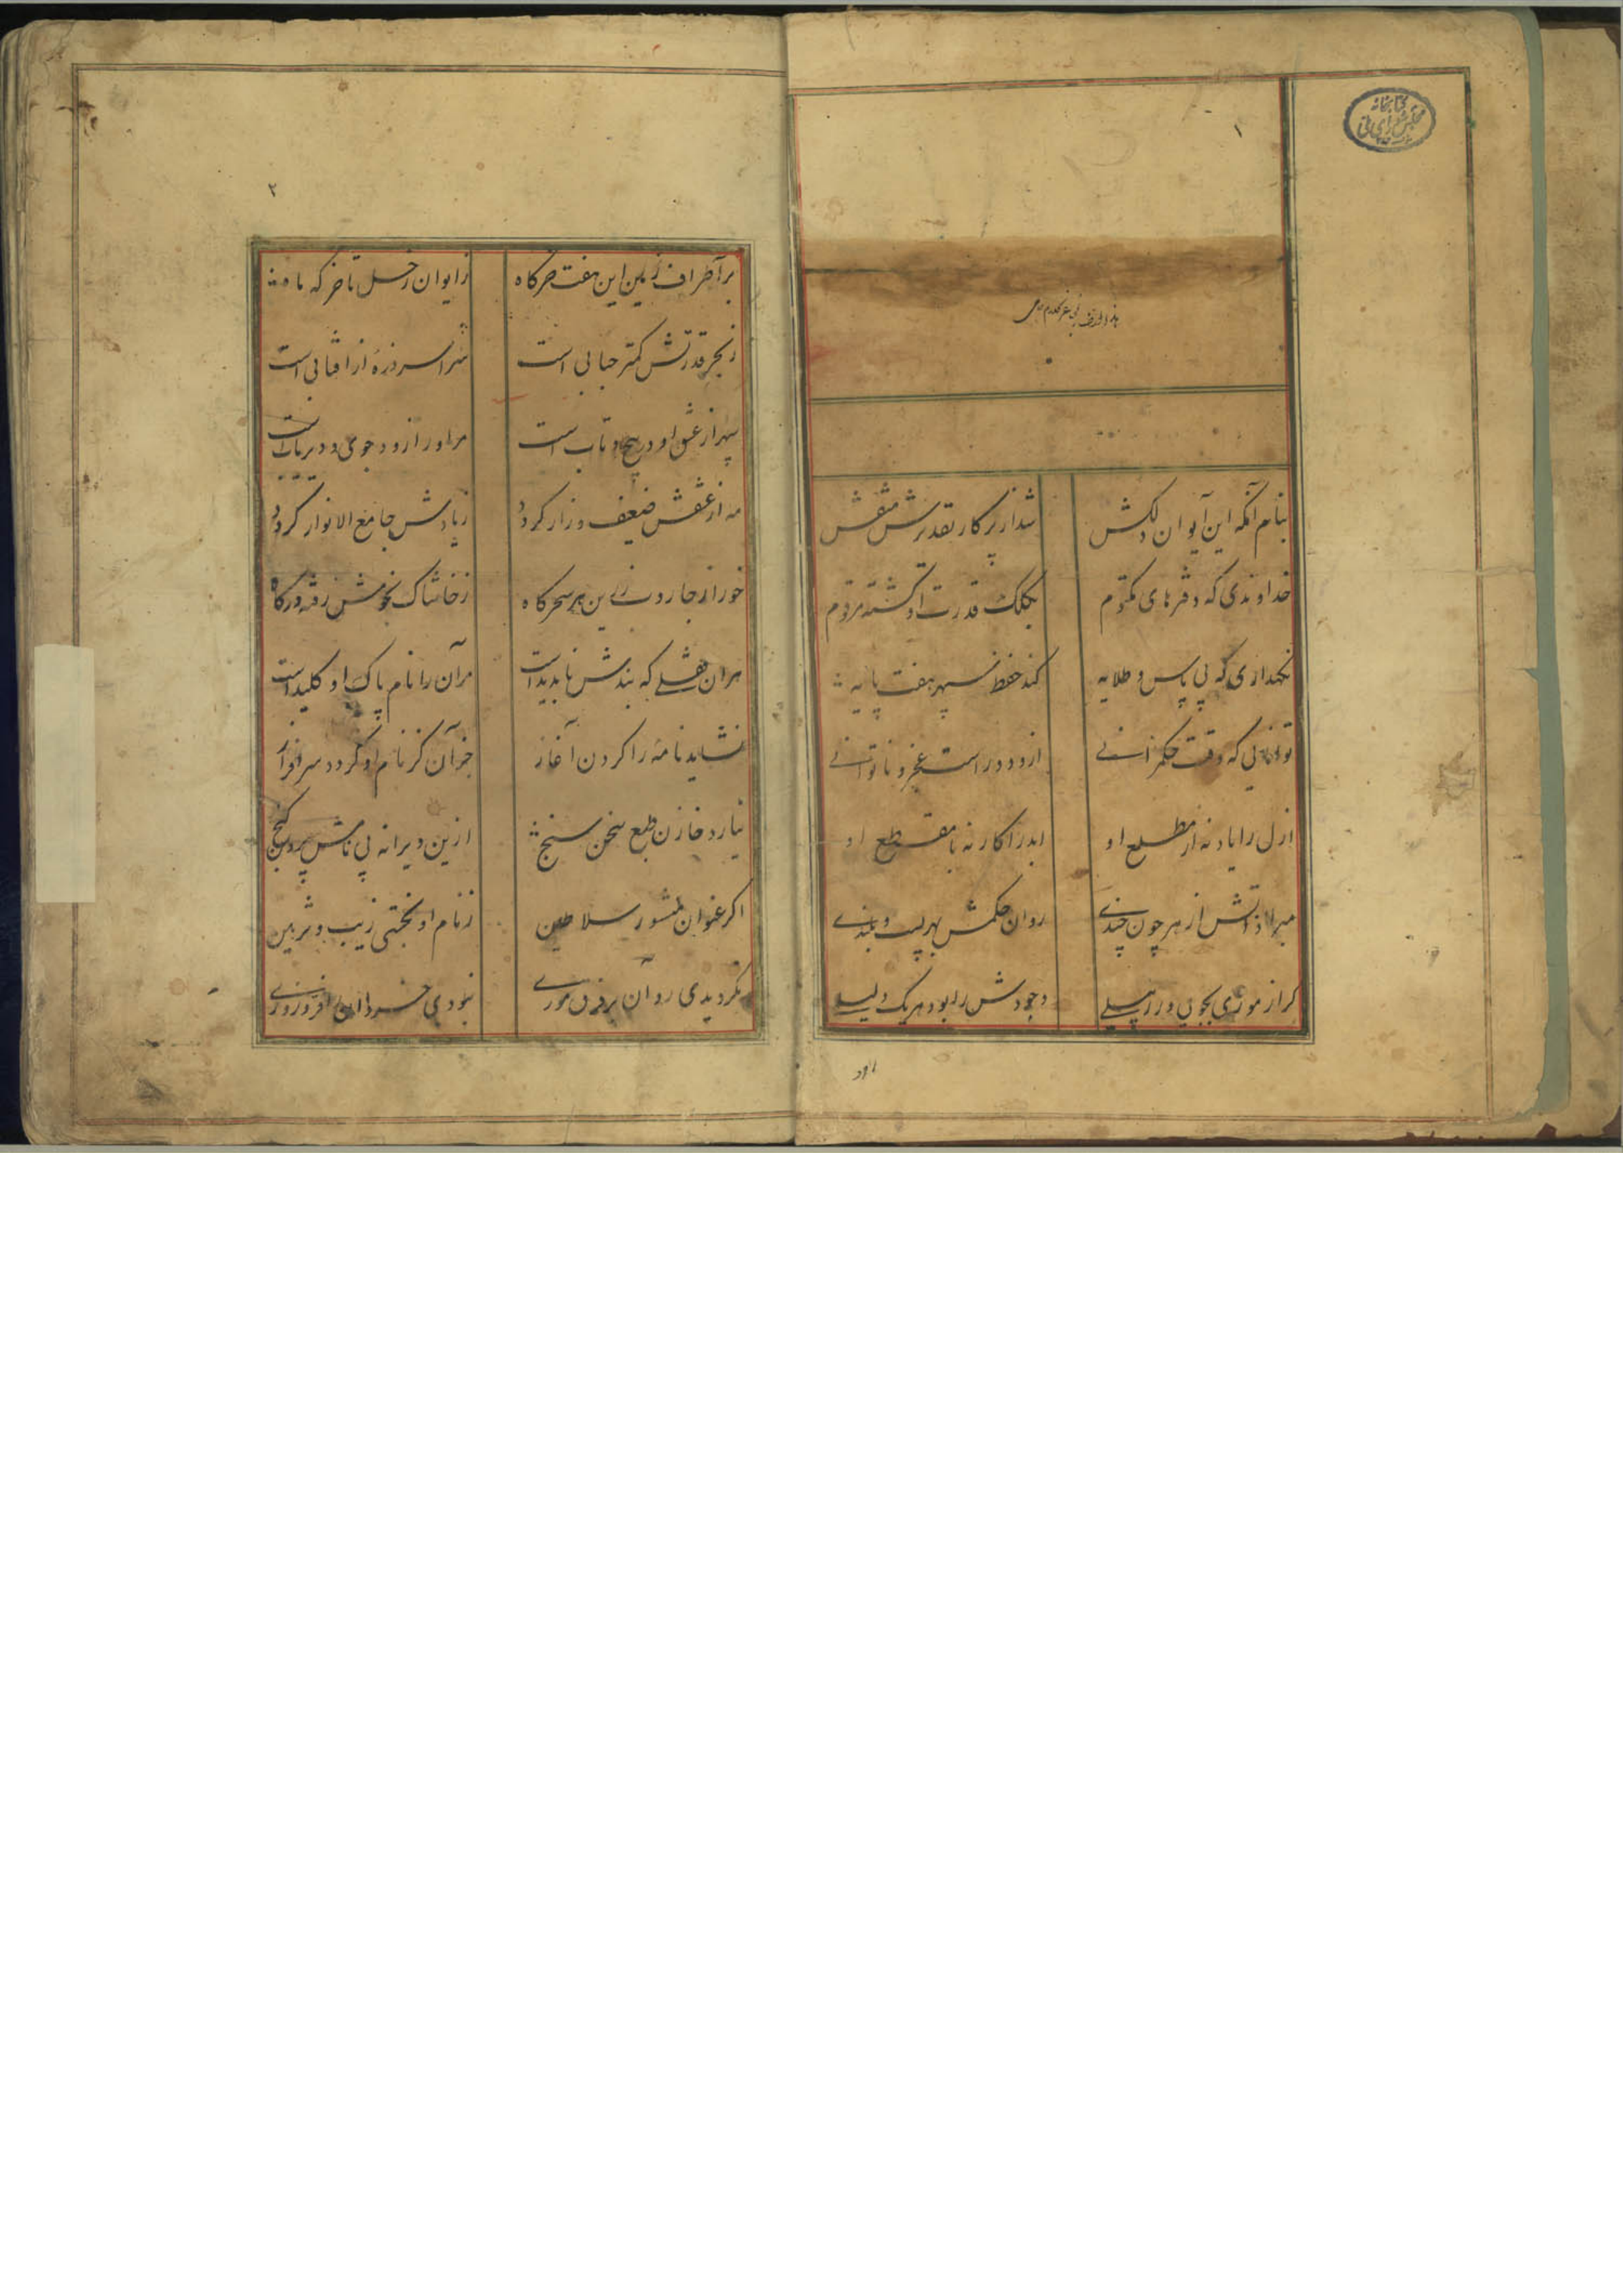 ۱
کتابخانه
مجلس شورای ملی
بنام آنکه این ایوان دلکش شد از پرکار تقدیرش منقش
خداوندی که دفترهای مکتوم بکلک قدرت او کشته مرقوم
نکهداری که بی پاس و طلایه کند حفظ سپهر هفت پایه
توانایی که وقت حکمرانی ازو دور است عجز و ناتوانی
ازل را یاد نه از مطلع او ابد را کار نه با مقطع او
مبرا ذاتش از هر چون و چندی روان حکمش بهر پست و بلندی
کر از موری بجویی ور ز پیلی وجودش را بود هر یک دلیلی
۲
بر اطراف زمین این هفت خرکاه ز ایوان زحل تا خرکه ماه
ز بحر قدرتش کمتر حبابی است سراسر ذره از افتابی است
سپهر از عشق او در پیچ و تاب است مر او را زو وجوی و دیر یاب است
مه از عشقش ضعیف و زار کردد ز یادش جامع الانوار کردد
خور از جاروب زرین هر سحرکاه ز خاشاک نجومش رفته درکاه
هر ان قفلی که بندش نا بدید است مر آن را نام پاک او کلید است
نشاید نامه را کردن آغاز جز آن کز نام او کردد سرافراز
نیارد خازن طبع سخن سنج ازین ویرانه بی نامش برون کنج
اکر عنوان منشور سلاطین ز نام او نجستی زیب و تزیین
نکردیدی روان بر فرق موری نبودی خسروان را فر و زوری